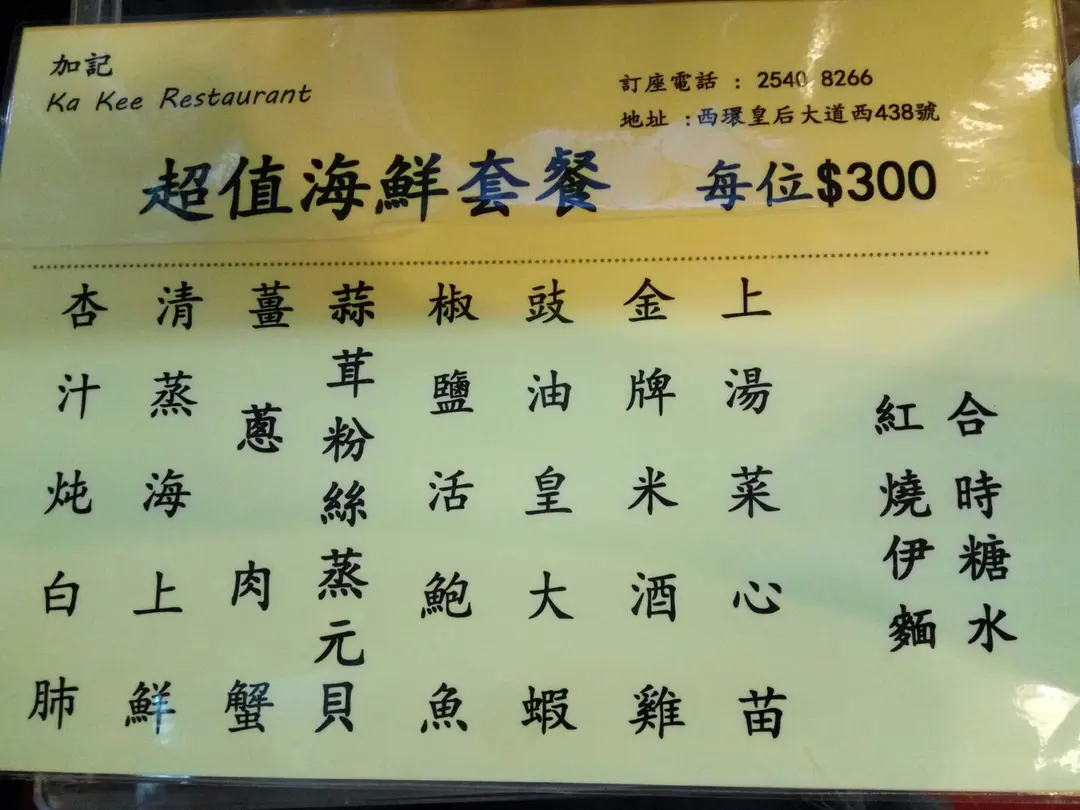 加記
Ka Kee Restaurant
訂座電話 : 2540 8266
地址 :西環皇后大道西438號
超值海鮮套餐 每位$300
杏汁炖白肺
清蒸海上鮮
薑蔥肉蟹
蒜茸粉絲蒸元貝
椒鹽活鮑魚
豉油皇大蝦
金牌米酒雞
上湯菜心苗
紅燒伊麵
合時糖水